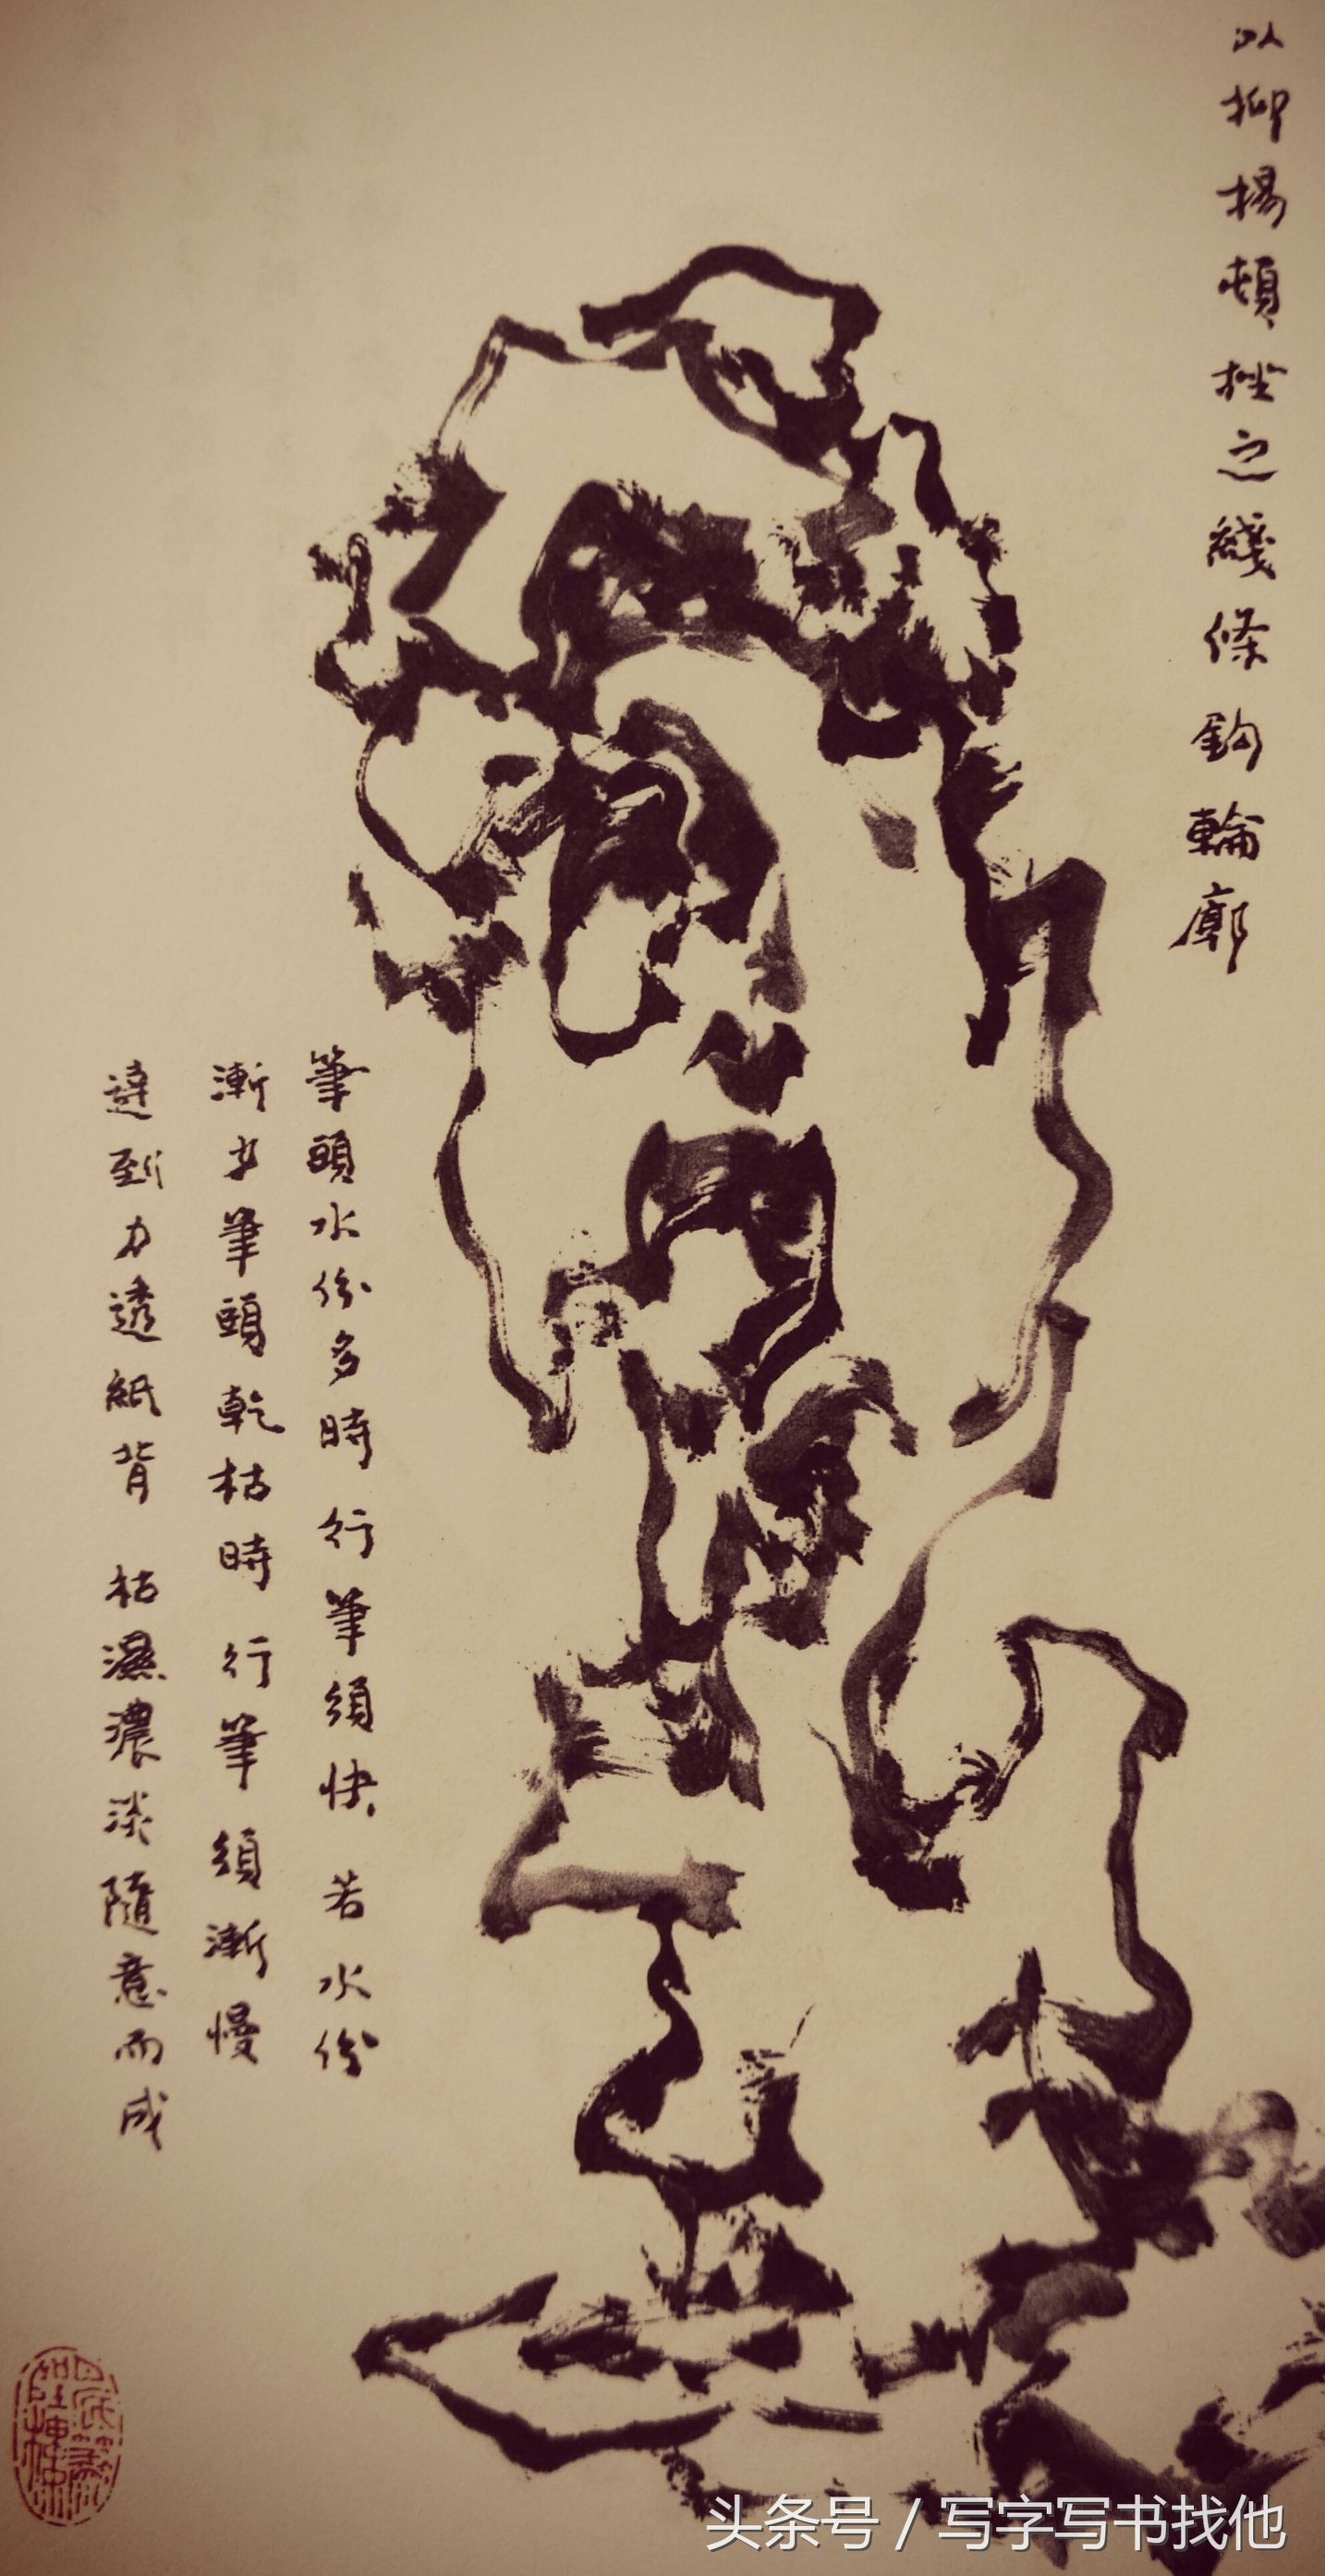 以抑揚頓挫之綫條鈎輪廓
筆頭水份多時行筆須快若水份
漸少筆頭乾枯時行筆須漸慢
達到力透紙背枯濕濃淡隨意而成
头条号 / 写字写书找他